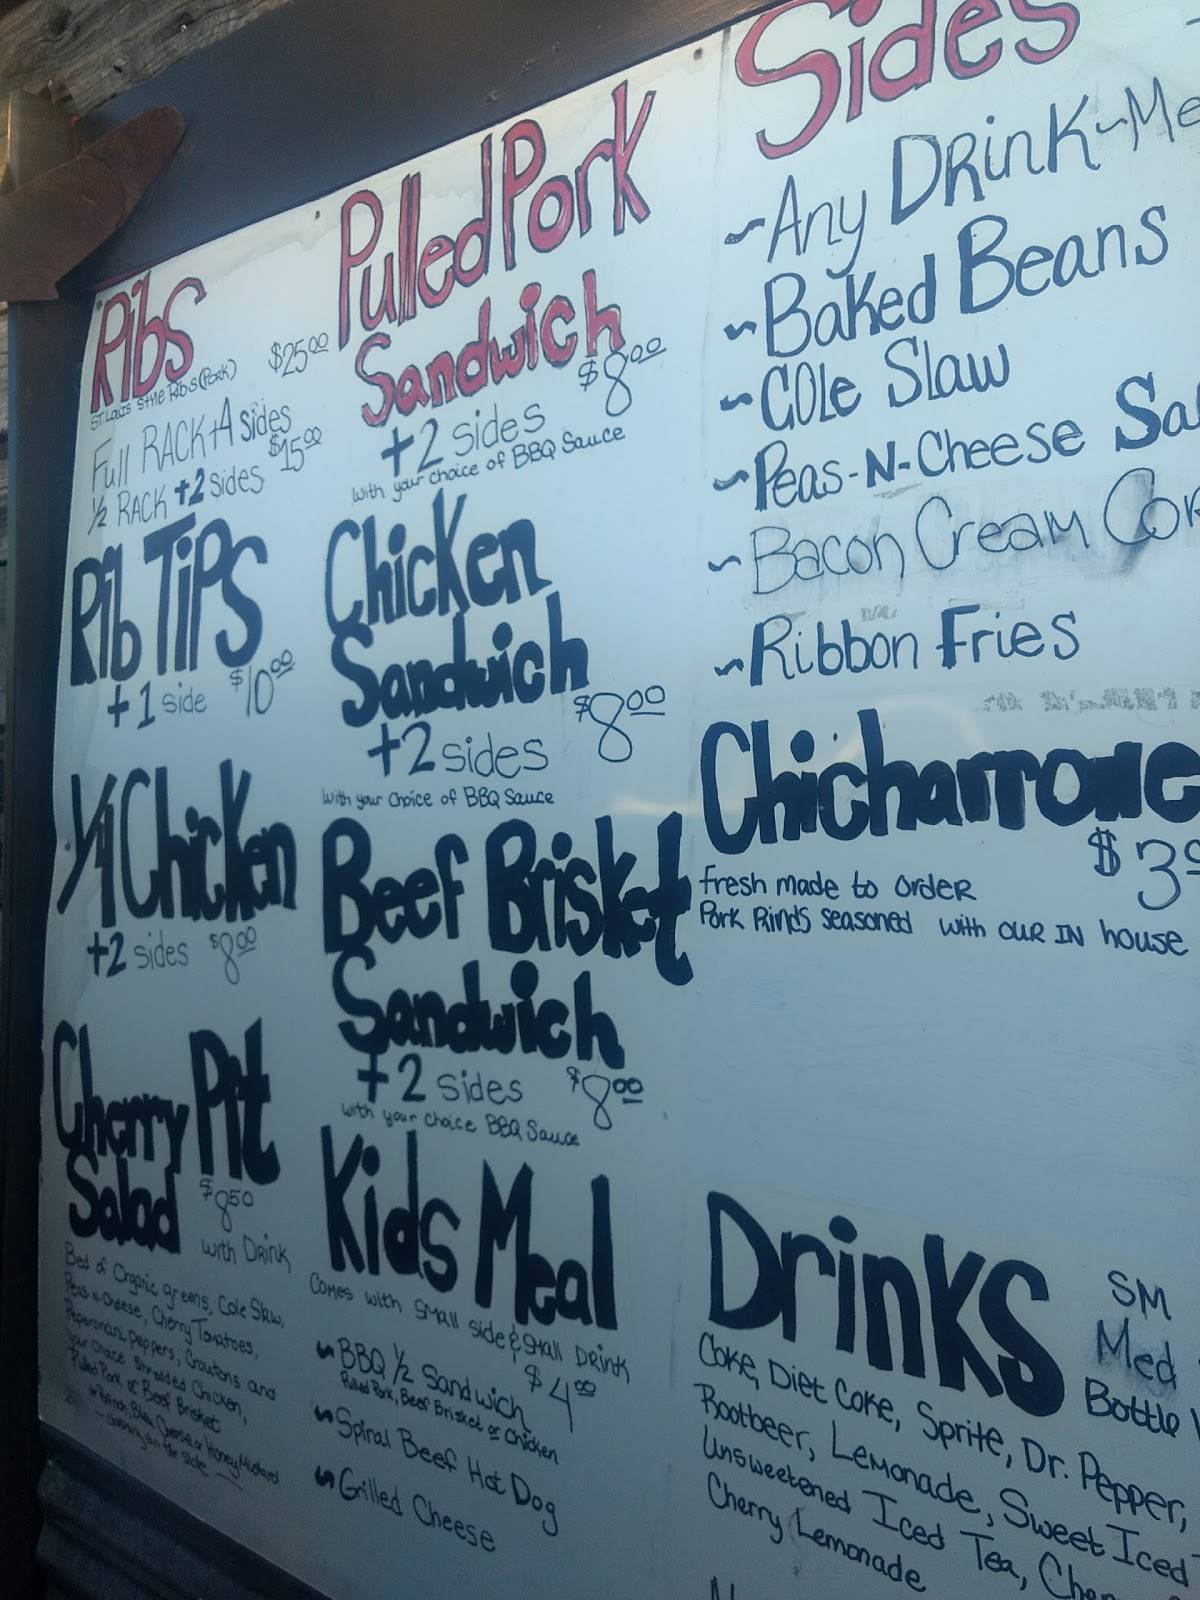 Ribs
St Louis Style Ribs (Pork) $25.00
Full RACK + 4 sides
½ RACK + 2 sides $15.00
Rib TIPS
+ 1 side $10.00
¼ Chicken
+2 sides $8.00
Cherry Pit
Salad $8.50
with Drink
Bed of Organic greens, Cole Slaw,
Peas-n-Cheese, Cherry Tomatoes,
Peperoncini peppers, Croutons and
your choice Shredded Chicken,
Pulled Pork or Beef Brisket
Ranch, Bleu Cheese or Honey Mustard
on the side
Pulled Pork
Sandwich
$8.00
+2 sides
with your choice of BBQ Sauce
Chicken
Sandwich
$8.00
+2 sides
with your choice of BBQ Sauce
Beef Brisket
Sandwich
+2 sides $8.00
with your choice BBQ Sauce
Kids Meal
Comes with small side & small Drink
$4.00
~BBQ ½ Sandwich
Pulled Pork, Beef Brisket or Chicken
~Spiral Beef Hot Dog
~Grilled Cheese
Sides
~Any DRinK~Me
~Baked Beans
~COLe Slaw
~Peas-N-Cheese Sa
~Bacon Cream Cor
~Ribbon Fries
Chicharrone
$3
fresh made to ordeR
Pork Rinds seasoned with OUR IN house
Drinks
SM
Med
Bottle
Coke, Diet Coke, Sprite, Dr. Pepper,
Rootbeer, Lemonade, Sweet Iced
Unsweetened Iced Tea, Che
Cherry Lemonade